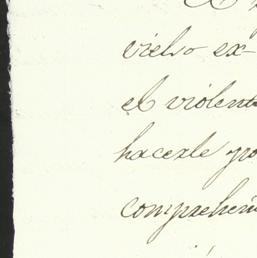 vielso ex-
el violent
hacerle po
comprehen